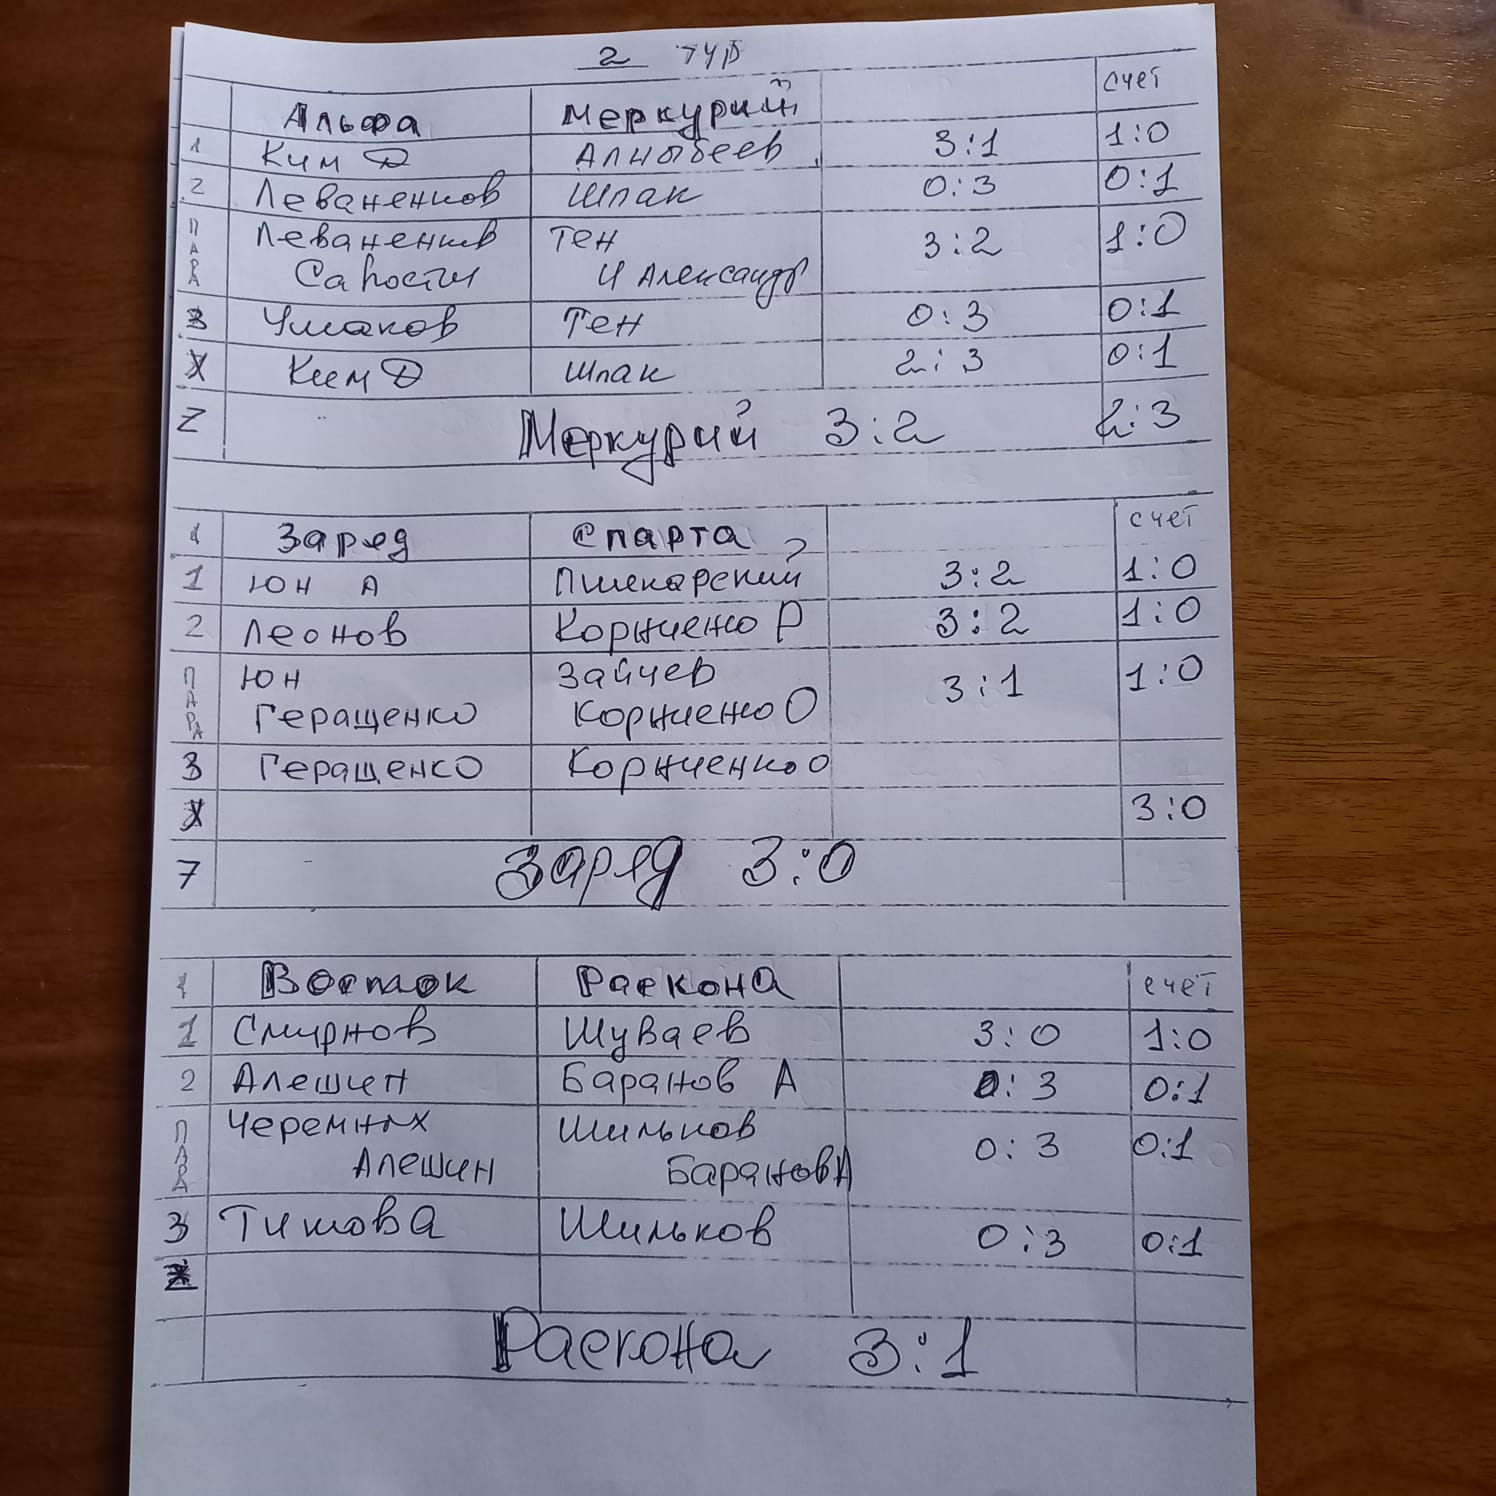 2 тур
счет
Альфа Меркурий
1 Ким Д Алноабеев 3:1 1:0
2 Леваненков Шпак 0:3 0:1
ПАРА Леваненков Тен 3:2 1:0
И Александр
3 Ушаков Тен 0:3 0:1
Ким Д Шпак 2:3 0:1
Меркурий 3:2 2:3
1 Заряд Спарта счет
1 Юн А Пшекарский 3:2 1:0
2 Леонов Корниенко Р 3:2 1:0
ПАРА Юн Зайцев 3:1 1:0
Геращенко Корниенко О
3 Геращенко Корниенко О
3:0
7 Заряд 3:0
1 Восток Раскона счет
1 Смирнов Шуваев 3:0 1:0
2 Алешин Баранов А 0:3 0:1
ПАРА Черемных Шильков 0:3 0:1
Алешин Баранов А
3 Титова Шильков 0:3 0:1
Раскона 3:1